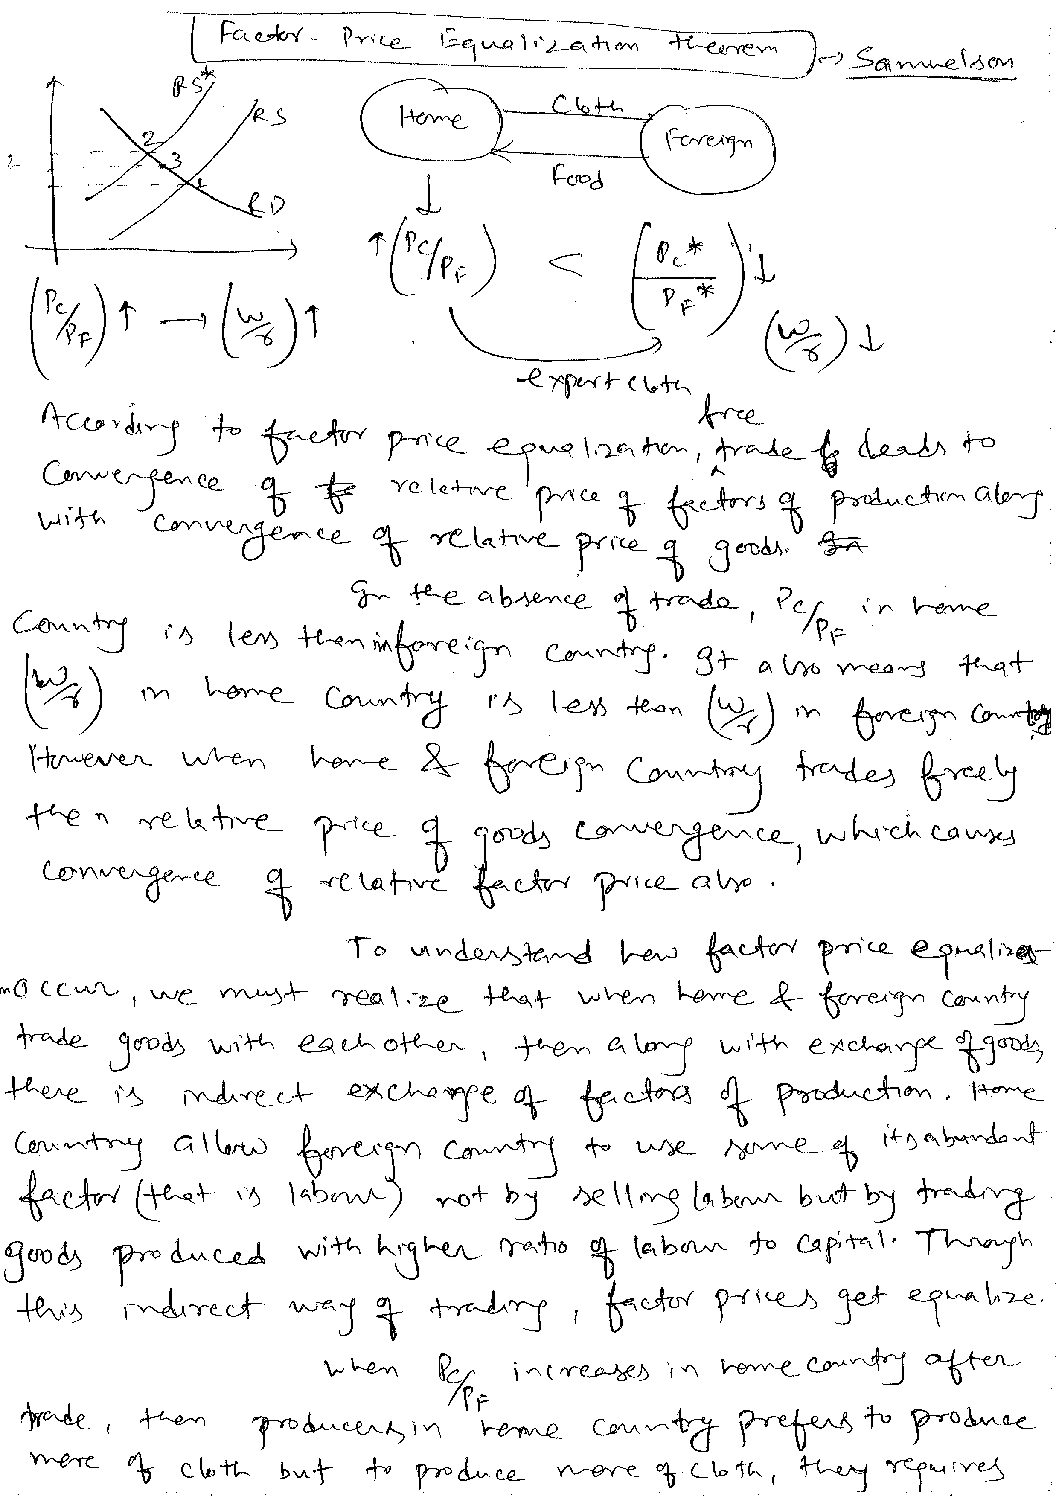 Factor-Price Equalization theorem → Samuelson
RS* RS
2
3
1
RD
Home Cloth Foreign
Food
↑(Pc/PF) < (Pc*/PF*)↓
(Pc/PF)↑ → (w/r)↑
(w/r)↓
export cloth
free
According to factor price equalization, trade leads to
Convergence of relative price of factors of production along
with convergence of relative price of goods.
In the absence of trade, Pc/PF in home
Country is less than in foreign country. It also means that
(w/r) in home country is less than (w/r) in foreign country
However when home & foreign country trades freely
then relative price of goods convergence, which causes
convergence of relative factor price also.
To understand how factor price equaliza
n occur, we must realize that when home & foreign country
trade goods with each other, then along with exchange of goods,
there is indirect exchange of factors of production. Home
Country allow foreign country to use some of its abundant
factor (that is labour) not by selling labour but by trading
goods produced with higher ratio of labour to capital. Through
this indirect way of trading, factor prices get equalize.
when Pc/PF increases in home country after
trade, then producers in home country prefers to produce
more of cloth but to produce more of cloth, they requires